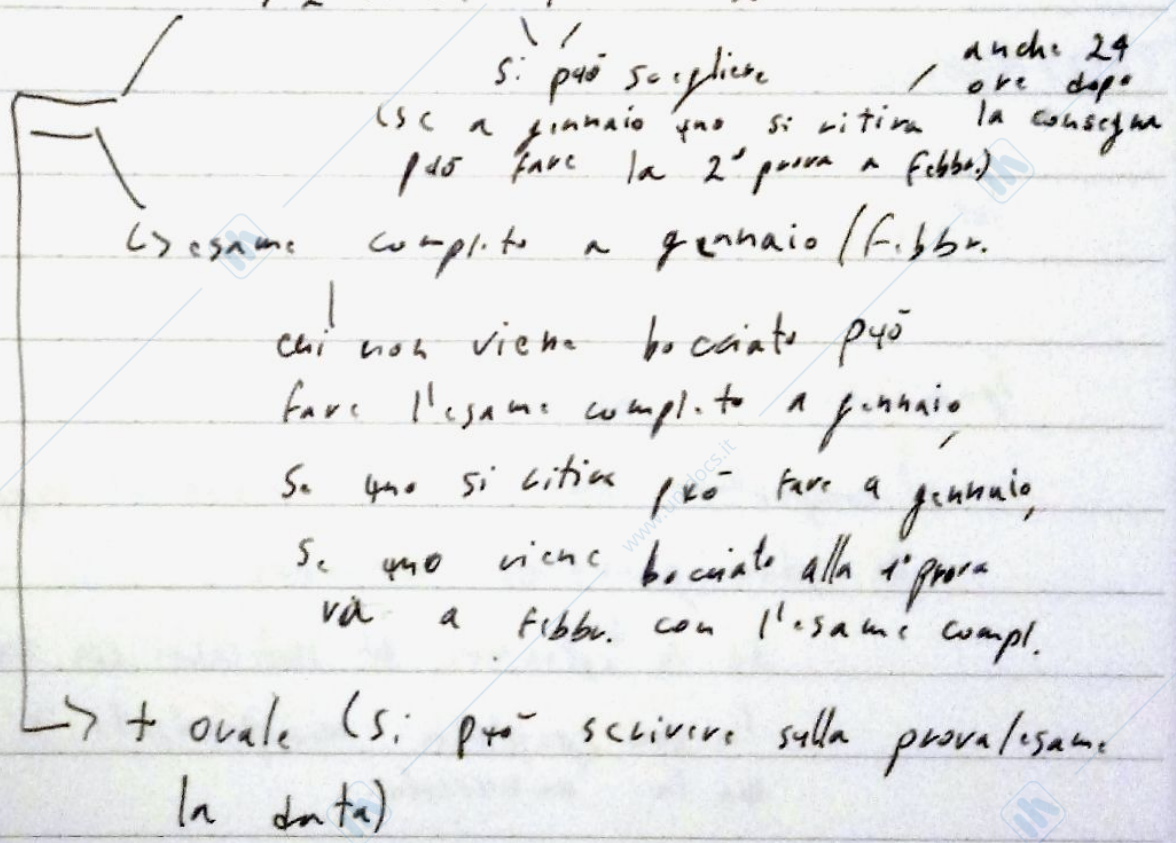 si può scegliere
anche 24
ore dopo
la consegna
(se a gennaio uno si ritira
può fare la 2° prova a febbr.)
↳ esame completo a gennaio/febbr.
chi non viene bocciato può
fare l'esame completo a gennaio,
se uno si ritira può fare a gennaio,
se uno viene bocciato alla 1° prova
va a febbr. con l'esame compl.
→ + orale (si può scrivere sulla prova/esame
la data)
www.unidocs.it